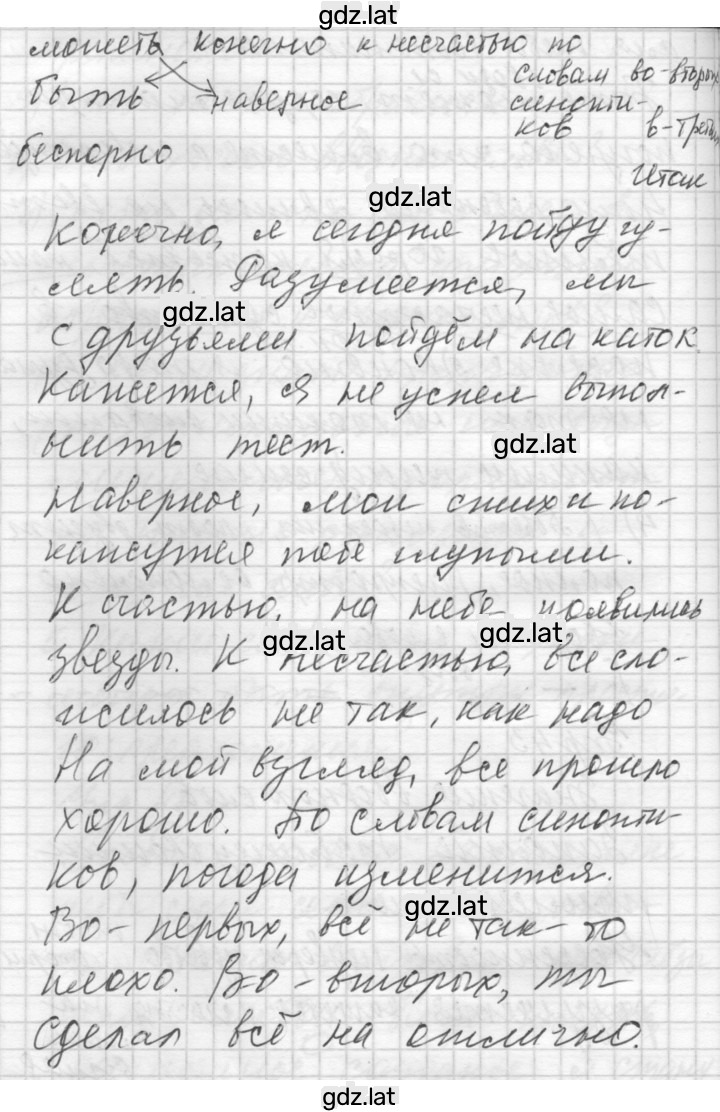 gdz.lat
можеть конечно к несчастью по
словам во-вторых
быть наверное синопти-
ков в-третьих
беспорно
Итак
gdz.lat
Конечно, я сегодня пойду гу-
лять. Разумеется, мы
gdz.lat
с друзьями пойдём на каток.
Кажется, я не успел выпол-
нить тест.
gdz.lat
Наверное, мои стихи по-
кажутся тебе глупыми.
К счастью, на небе появились
gdz.lat gdz.lat
звезды. К несчастью, все сло-
жилось не так, как надо
На мой взгляд, все прошло
хорошо. По словам синопти-
ков, погода изменится.
gdz.lat
Во-первых, всё не так-то
плохо. Во-вторых, ты
сделал всё на отлично.
gdz.lat